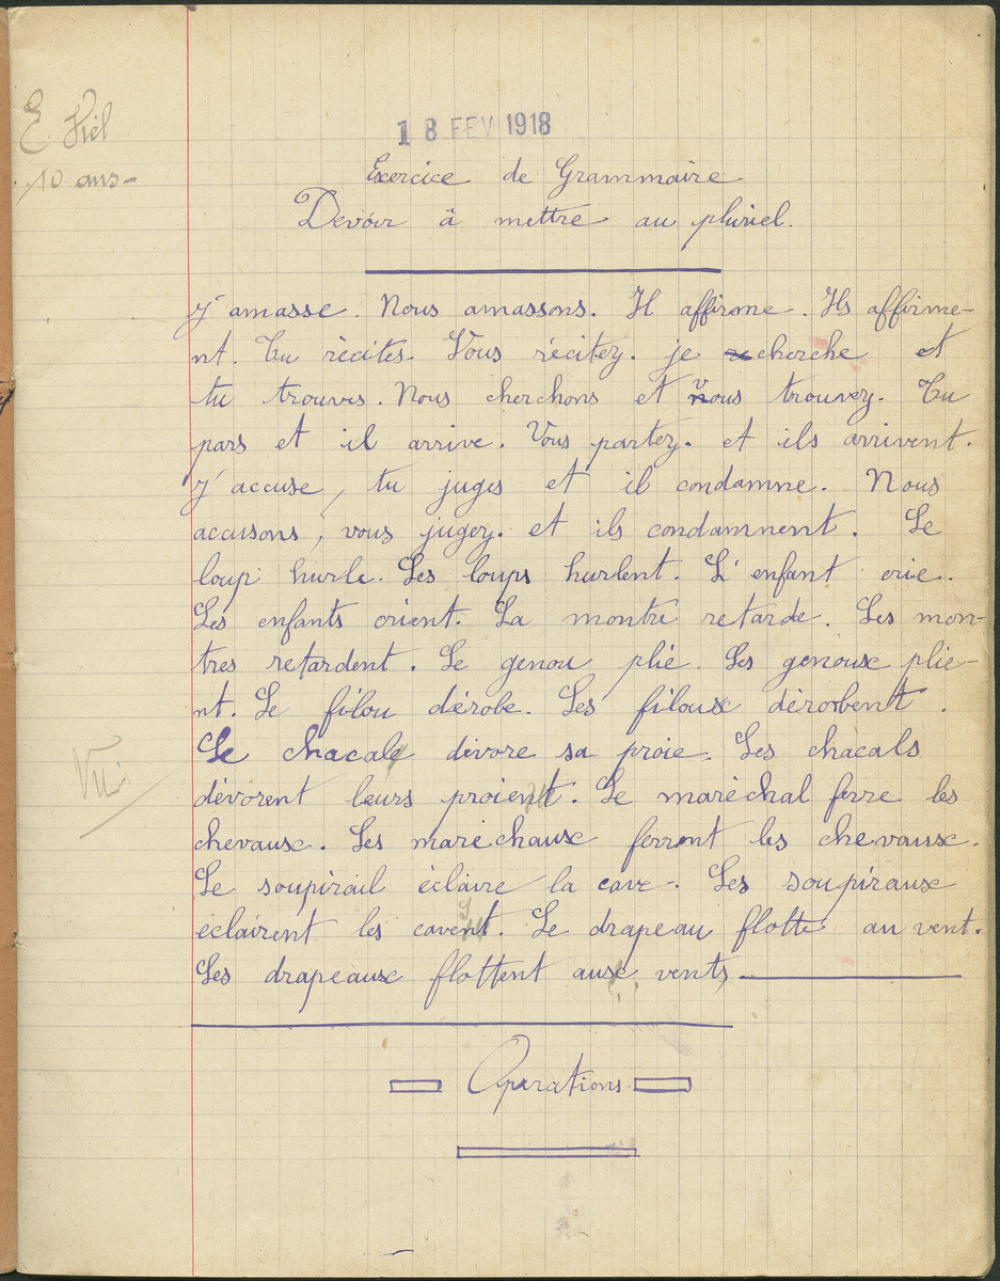 E. Viel
10 ans -
18 FEV 1918
Exercice de Grammaire
Devoir à mettre au pluriel.
J'amasse. Nous amassons. Il affirme. Ils affirme-
nt. Tu récites. Vous récitez. je cherche et
tu trouves. Nous cherchons et vous trouvez. Tu
pars et il arrive. Vous partez. et ils arrivent.
J'accuse, tu juges et il condamne. Nous
accusons, vous jugez. et ils condamnent. Le
loup hurle. Les loups hurlent. L'enfant crie.
Les enfants crient. La montre retarde. Les mon-
tres retardent. Le genou plie. Les genoux plie-
nt. Le filou dérobe. Les filoux dérobent.
Le chacale dévore sa proie. Les chacals
dévorent leurs proient. Le maréchal ferre les
chevaux. Les maréchaux ferrent les chevaux.
Le soupirail éclaire la cave. Les soupiraux
éclairent les cavent. Le drapeau flotte au vent.
Les drapeaux flottent aux vents
Opérations